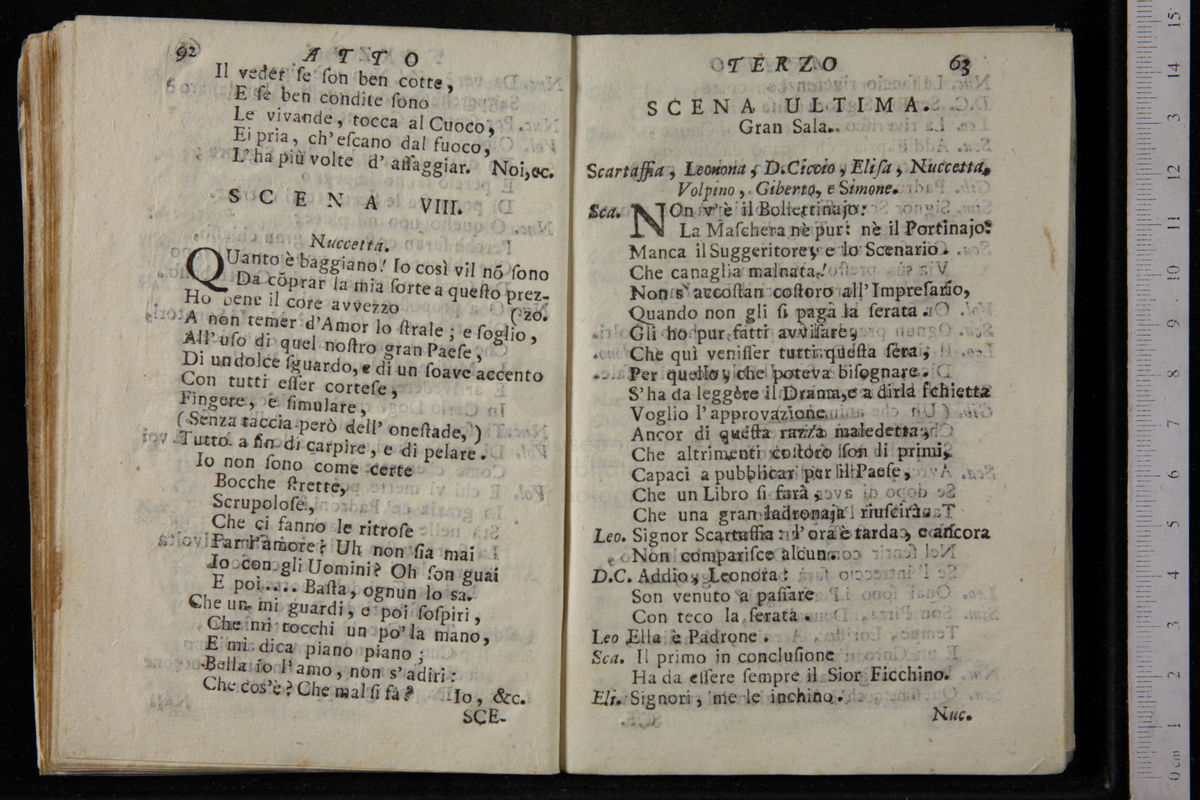 92
ATTO
Il veder ſe ſon ben cotte,
E ſe ben condite ſono
Le vivande, tocca al Cuoco,
Ei pria, ch'eſcano dal fuoco,
L'ha più volte d' aſſaggiar. Noi, &c.
SCENA VIII.
Nuccetta.
QUanto è baggiano! Io così vil nõ ſono
Da cõprar la mia ſorte a queſto prez-
Ho bene il core avvezzo (zo.
A non temer d'Amor lo ſtrale; e ſoglio,
All' uſo di quel noſtro gran Paeſe,
Di un dolce ſguardo, e di un ſoave accento
Con tutti eſſer corteſe,
Fingere, e ſimulare,
(Senza taccia però dell' oneſtade,)
Tutto a fin di carpire, e di pelare.
Io non ſono come certe
Bocche ſtrette,
Scrupoloſe,
Che ci fanno le ritroſe
Far l'amore? Uh non ſia mai
Io con gli Uomini? Oh ſon guai
E poi.... Baſta, ognun lo sa.
Che un mi guardi, e poi ſoſpiri,
Che mi tocchi un po' la mano,
E mi dica piano piano;
Bella io l'amo, non s'adiri:
Che cos'è? Che mal ſi fa? Io, &c.
SCE-
TERZO
63
SCENA ULTIMA.
Gran Sala.
Scartaffia, Leonora, D.Ciccio, Eliſa, Nuccetta,
Volpino, Giberto, e Simone.
Sca. NOn v'è il Bollettinajo:
La Maſchera nè pur: nè il Portinajo:
Manca il Suggeritore, e lo Scenario.
Che canaglia malnata!
Non s' accoſtan coſtoro all'Impreſario,
Quando non gli ſi paga la ſerata.
Gli ho pur fatti avviſare,
Che quì veniſſer tutti queſta ſera,
Per quello, che poteva biſognare.
S'ha da leggere il Drama, e a dirla ſchietta
Voglio l'approvazione
Ancor di queſta razza maledetta;
Che altrimenti coſtoro ſon di primi,
Capaci a pubblicar per il Paeſe,
Che un Libro ſi farà,
Che una gran ladronaja riuſcirà.
Leo. Signor Scartaffia: l'ora è tarda, e ancora
Non compariſce alcun.
D.C. Addio, Leonora:
Son venuto a paſſare
Con teco la ſerata.
Leo Ella è Padrone.
Sca. Il primo in concluſione
Ha da eſſere ſempre il Sior Ficchino.
Eli. Signori, me le inchino.
Nuc.
0 cm 1 2 3 4 5 6 7 8 9 10 11 12 13 14 15